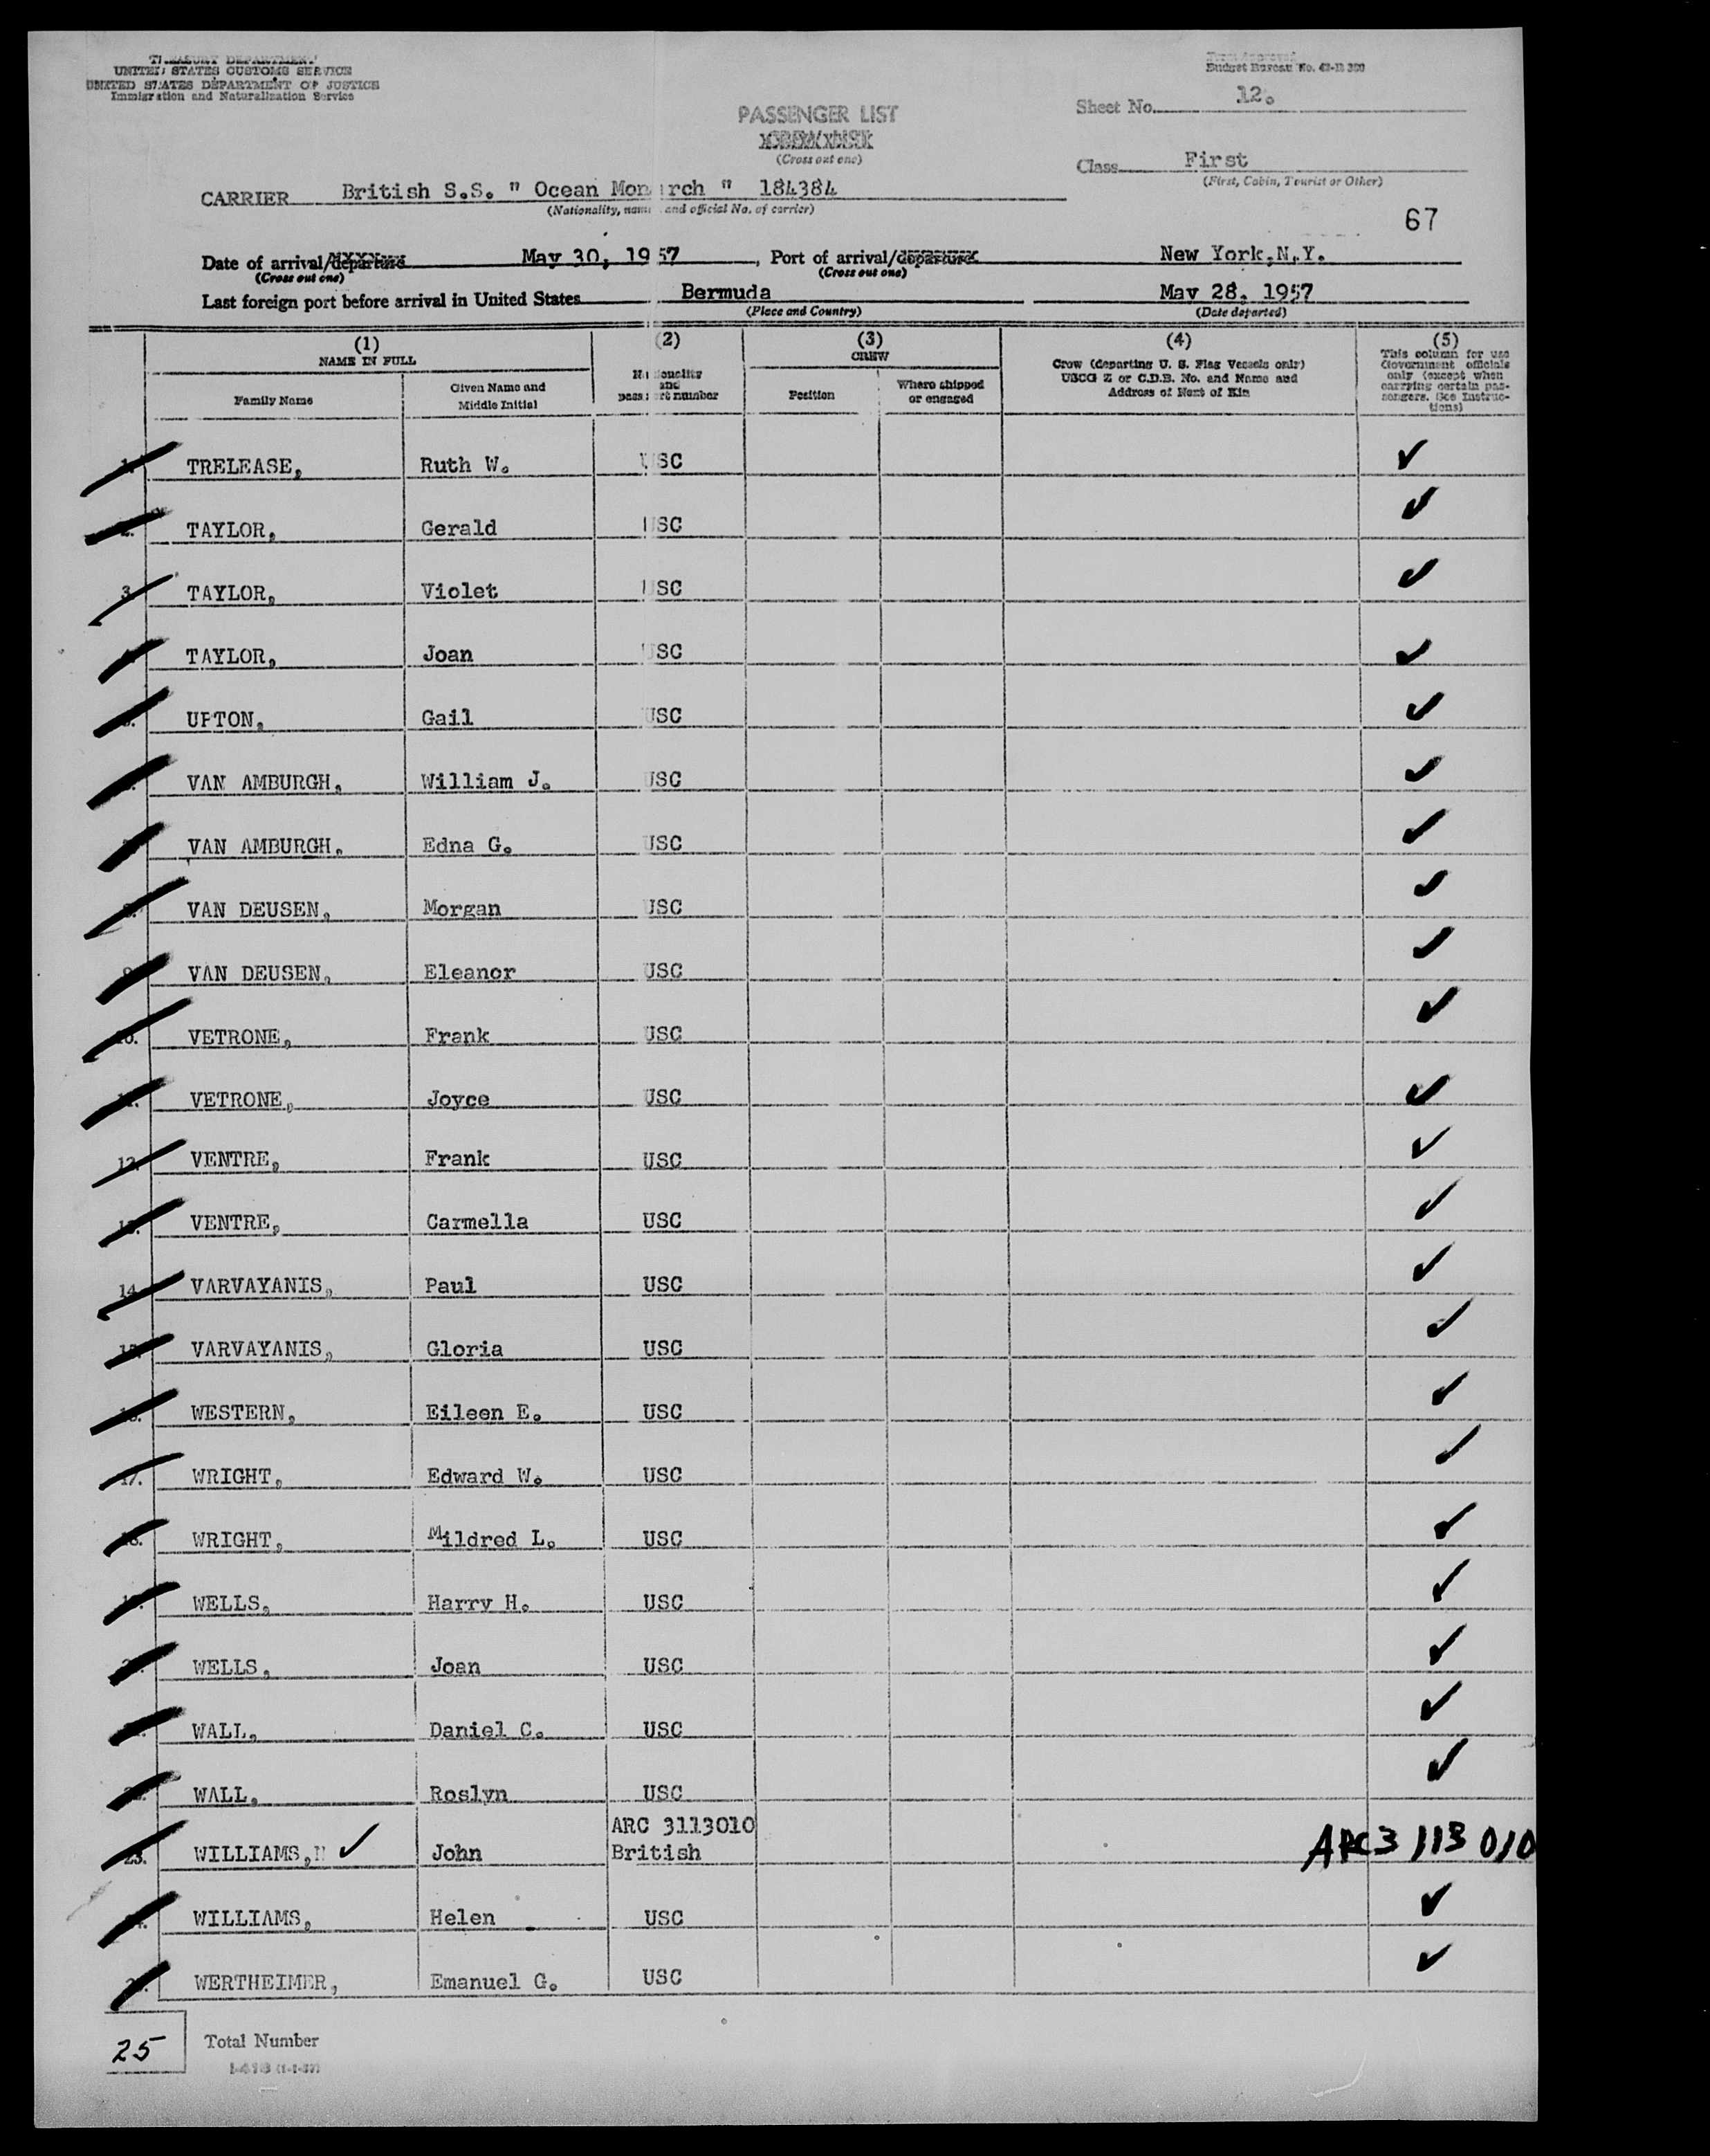 TREASURY DEPARTMENT
UNITED STATES CUSTOMS SERVICE
UNITED STATES DEPARTMENT OF JUSTICE
Immigration and Naturalization Service
Form Approved
Budget Bureau No.
Sheet No. 12.
PASSENGER LIST
(Cross out one)
Class First
(First, Cabin, Tourist or Other)
CARRIER British S.S. " Ocean Monarch " 184384
(Nationality, name and official No. of carrier)
67
Date of arrival/departure May 30, 1957, Port of arrival/departure New York,N.Y.
(Cross out one) (Cross out one)
Last foreign port before arrival in United States Bermuda May 28, 1957
(Place and Country) (Date departed)
(1) (2) (3) (4) (5)
NAME IN FULL
Family Name
Given Name and Middle Initial
Nationality and passport number
CREW
Position
Where shipped or engaged
Crew (departing U. S. Flag Vessels only) USCG Z or C.D.B. No. and Name and Address of Next of Kin
This column for use Government officials only (except when carrying certain passengers. See Instructions)
1. TRELEASE, Ruth W. USC ✓
2. TAYLOR, Gerald USC ✓
3. TAYLOR, Violet USC ✓
4. TAYLOR, Joan USC ✓
5. UPTON, Gail USC ✓
6. VAN AMBURGH, William J. USC ✓
7. VAN AMBURGH, Edna G. USC ✓
8. VAN DEUSEN, Morgan USC ✓
9. VAN DEUSEN, Eleanor USC ✓
10. VETRONE, Frank USC ✓
11. VETRONE, Joyce USC ✓
12. VENTRE, Frank USC ✓
13. VENTRE, Carmella USC ✓
14. VARVAYANIS, Paul USC ✓
15. VARVAYANIS, Gloria USC ✓
16. WESTERN, Eileen E. USC ✓
17. WRIGHT, Edward W. USC ✓
18. WRIGHT, Mildred L. USC ✓
19. WELLS, Harry H. USC ✓
20. WELLS, Joan USC ✓
21. WALL, Daniel C. USC ✓
22. WALL, Roslyn USC ✓
ARC 3113010
23. WILLIAMS, ✓ John British ARC3 113 010
24. WILLIAMS, Helen USC ✓
25. WERTHEIMER, Emanuel G. USC ✓
25 Total Number